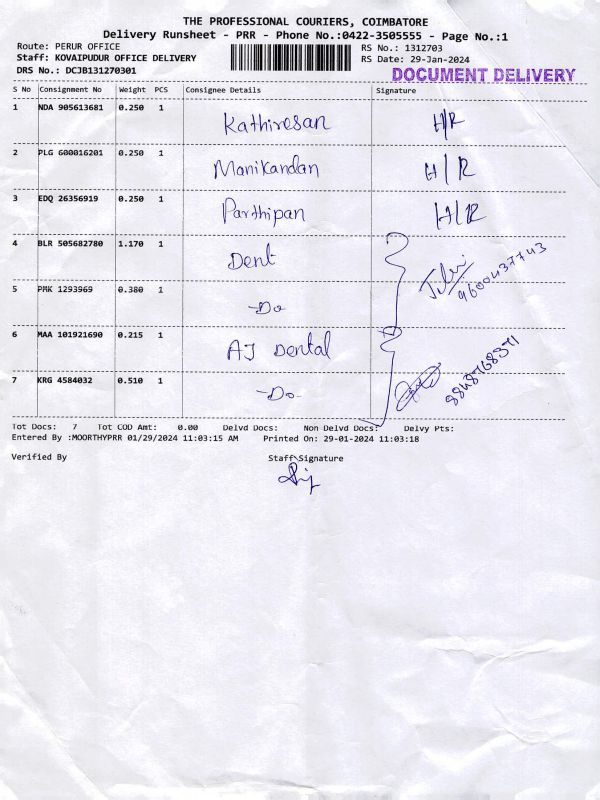 THE PROFESSIONAL COURIERS, COIMBATORE
Delivery Runsheet - PRR - Phone No.:0422-3505555 - Page No.:1
Route: PERUR OFFICE RS No.: 1312703
Staff: KOVAIPUDUR OFFICE DELIVERY RS Date: 29-Jan-2024
DRS No.: DCJB131270301 DOCUMENT DELIVERY
S No Consignment No Weight PCS Consignee Details Signature
1 NDA 905613681 0.250 1 Kathiresan H/R
2 PLG 600016201 0.250 1 Manikandan H/R
3 EDQ 26356919 0.250 1 Parthipan H/R
4 BLR 505682780 1.170 1 Dent
9600437743
5 PMK 1293969 0.380 1 -Do
6 MAA 101921690 0.215 1 AJ Dental
8848768371
7 KRG 4584032 0.510 1 -Do-
Tot Docs: 7 Tot COD Amt: 0.00 Delvd Docs: Non Delvd Docs: Delvy Pts:
Entered By :MOORTHYPRR 01/29/2024 11:03:15 AM Printed On: 29-01-2024 11:03:18
Verified By Staff Signature